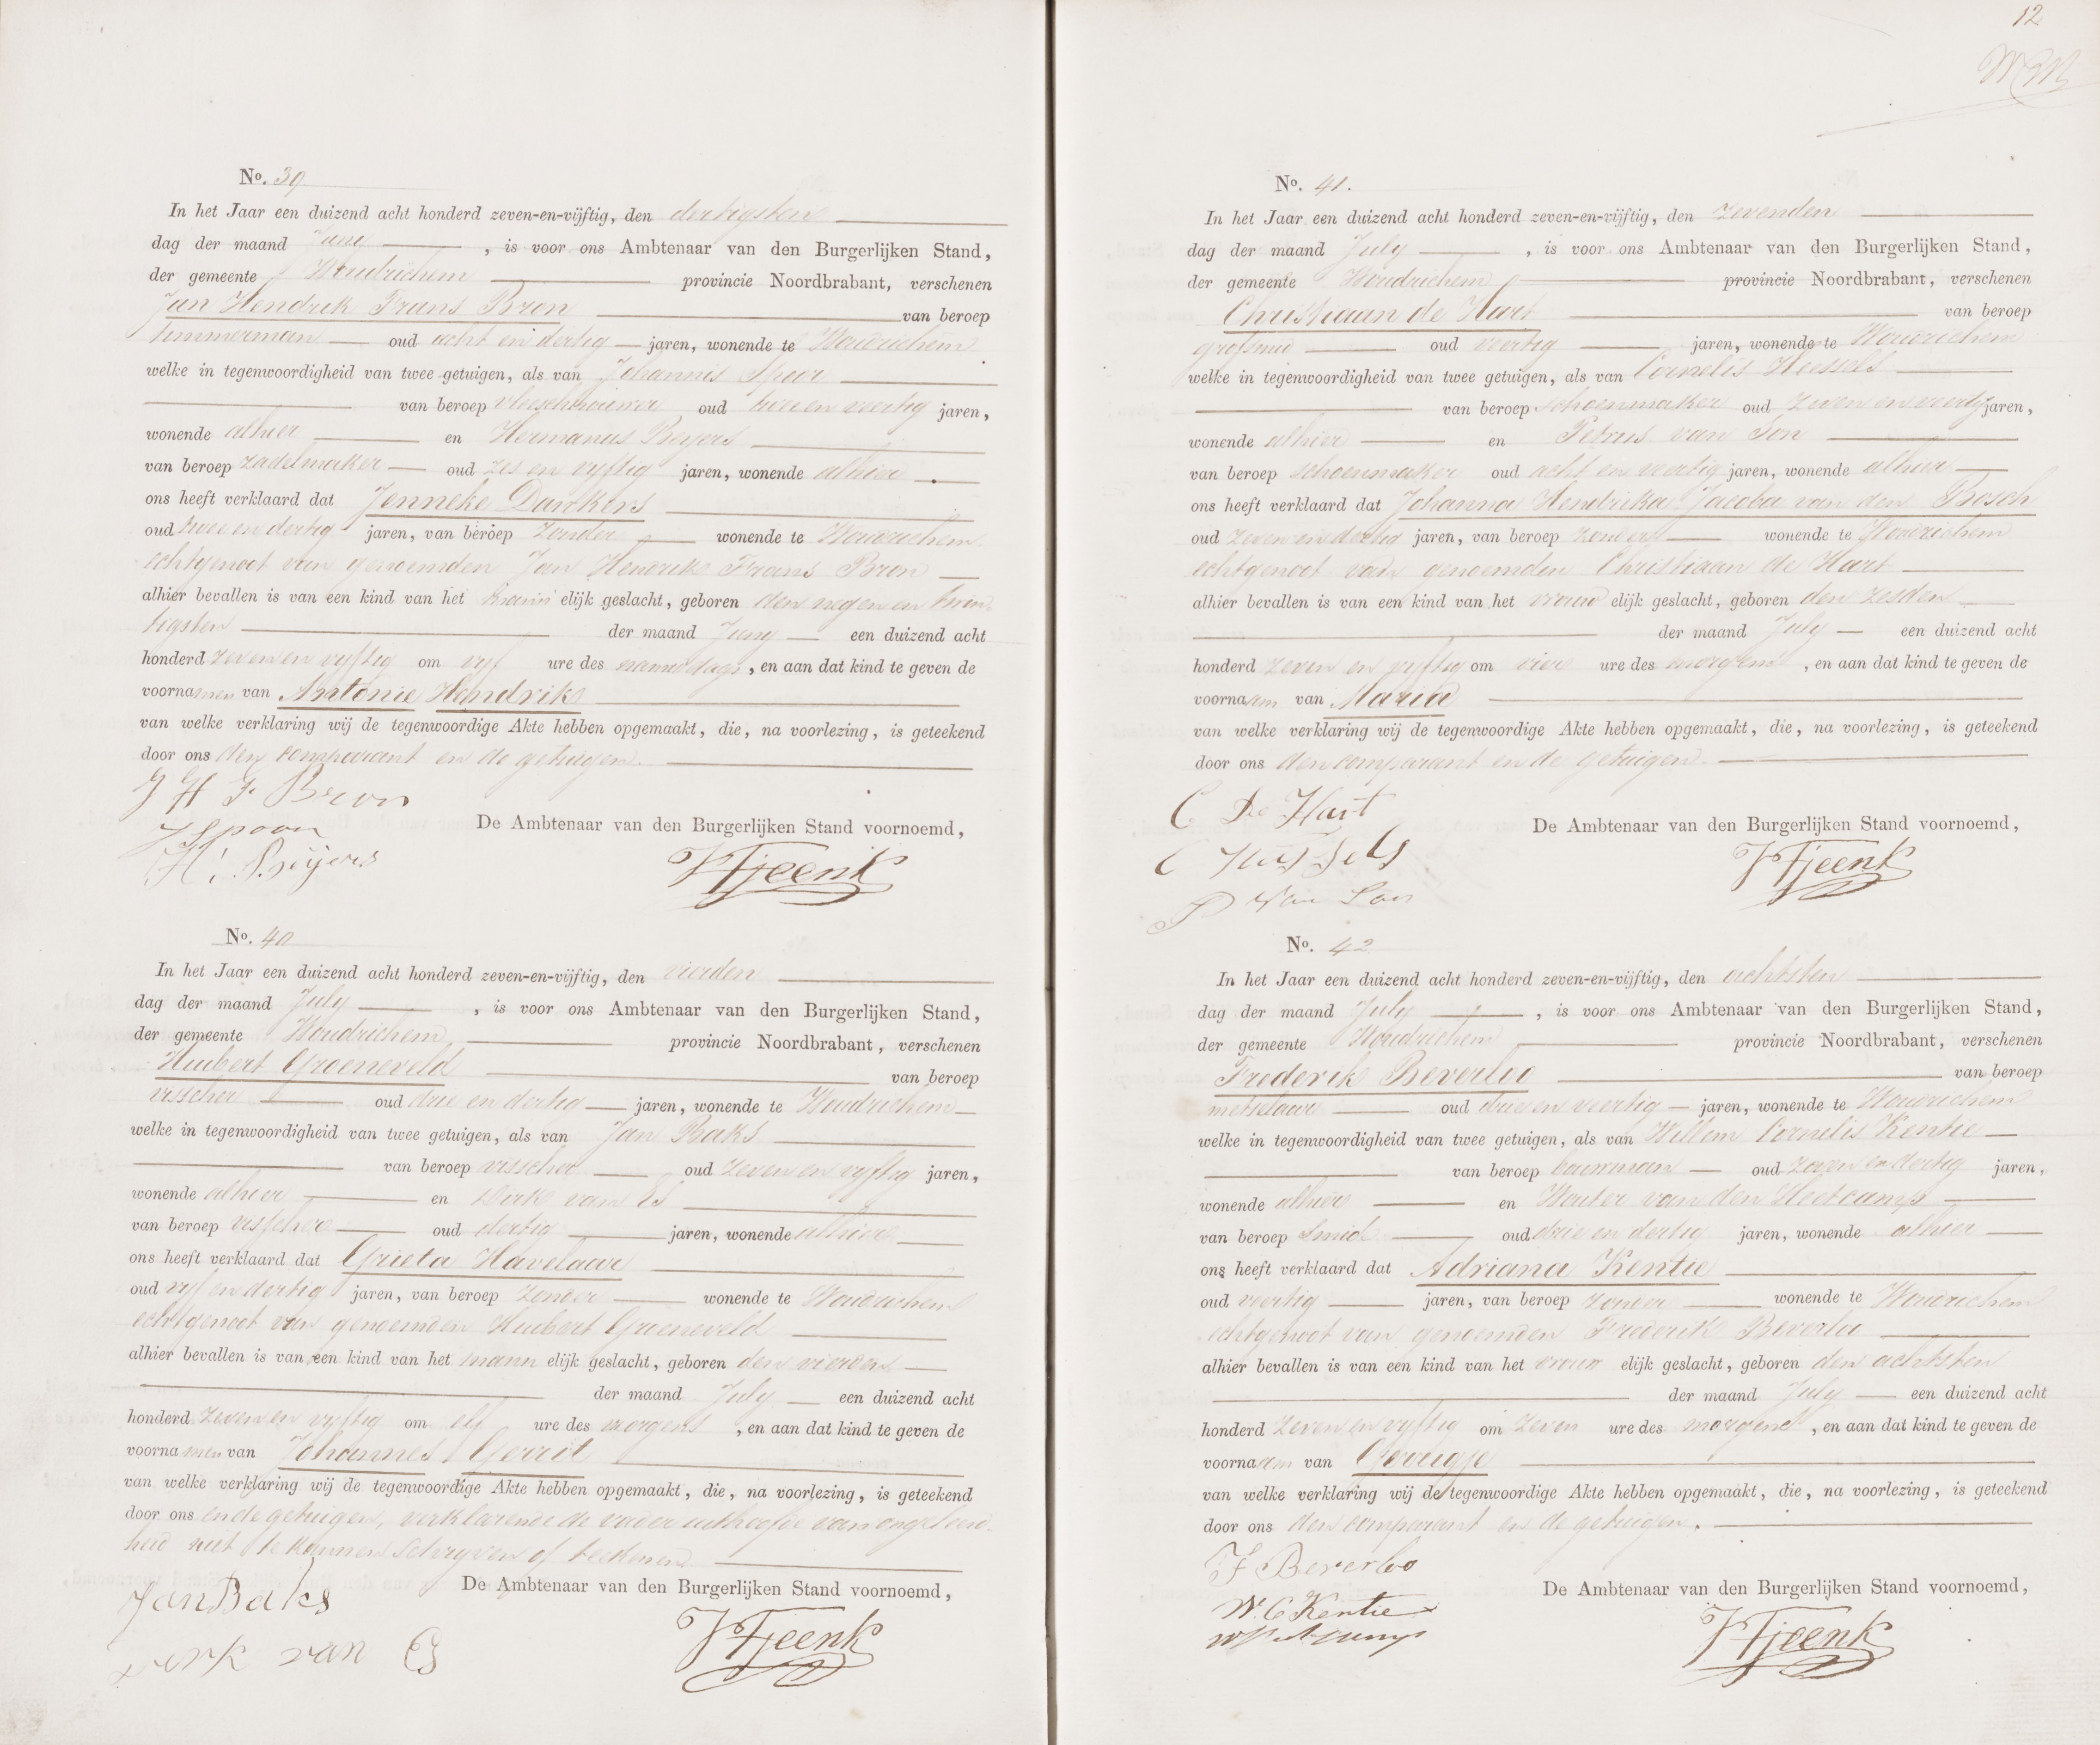 No. 39
In het Jaar een duizend acht honderd zeven-en-vijftig, den dertigsten
dag der maand Juny, is voor ons Ambtenaar van den Burgerlijken Stand,
der gemeente Woudrichem provincie Noordbrabant, verschenen
Jan Hendrik Frans Bron van beroep
timmerman oud acht en dertig jaren, wonende te Woudrichem
welke in tegenwoordigheid van twee getuigen, als van Johannis Spoor
van beroep vleeschhouwer oud twee en veertig jaren,
wonende alhier en Hermanus Reyers
van beroep zadelmaker oud zes en vyftig jaren, wonende alhier
ons heeft verklaard dat Jenneke Donkers
oud twee en dertig jaren, van beroep zonder wonende te Woudrichem
echtgenoot van genoemden Jan Hendrik Frans Bron
alhier bevallen is van een kind van het mann elijk geslacht, geboren den negen en twin
tigsten der maand Juny een duizend acht
honderd zeven en vyftig om vyf ure des namiddags, en aan dat kind te geven de
voornamen van Antonie Hendrik
van welke verklaring wij de tegenwoordige Akte hebben opgemaakt, die, na voorlezing, is geteekend
door ons den comparant en de getuigen.
J H F Bron
J Spoor
De Ambtenaar van den Burgerlijken Stand voornoemd,
H. Reijers
Tjeenk
No. 40
In het Jaar een duizend acht honderd zeven-en-vijftig, den vierden
dag der maand July, is voor ons Ambtenaar van den Burgerlijken Stand,
der gemeente Woudrichem provincie Noordbrabant, verschenen
Huibert Groeneveld van beroep
visscher oud drie en dertig jaren, wonende te Woudrichem
welke in tegenwoordigheid van twee getuigen, als van Jan Baks
van beroep visscher oud zeven en vyftig jaren,
wonende alhier en Dirk van Es
van beroep visscher oud dertig jaren, wonende alhier
ons heeft verklaard dat Grieta Havelaar
oud vyf en dertig jaren, van beroep zonder wonende te Woudrichem
echtgenoot van genoemden Huibert Groeneveld
alhier bevallen is van een kind van het mann elijk geslacht, geboren den vierden
der maand July een duizend acht
honderd zeven en vyftig om elf ure des morgens, en aan dat kind te geven de
voornamen van Johannes Gerrit
van welke verklaring wij de tegenwoordige Akte hebben opgemaakt, die, na voorlezing, is geteekend
door ons en de getuigen, verklarende de vader uithoofde van ongeleerd
heid niet te kunnen schryven of teekenen
De Ambtenaar van den Burgerlijken Stand voornoemd,
Jan Baks
Dirk van Es
Tjeenk
12
No. 41.
In het Jaar een duizend acht honderd zeven-en-vijftig, den zevenden
dag der maand July, is voor ons Ambtenaar van den Burgerlijken Stand,
der gemeente Woudrichem provincie Noordbrabant, verschenen
Christiaan de Hart van beroep
grofsmid oud veertig jaren, wonende te Woudrichem
welke in tegenwoordigheid van twee getuigen, als van Cornelis Hessels
van beroep schoenmaker oud zeven en veertig jaren,
wonende alhier en Petrus van Son
van beroep schoenmaker oud acht en veertig jaren, wonende alhier
ons heeft verklaard dat Johanna Hendrika Jacoba van den Bosch
oud zeven en dertig jaren, van beroep zonder wonende te Woudrichem
echtgenoot van genoemden Christiaan de Hart
alhier bevallen is van een kind van het vrouw elijk geslacht, geboren den zesden
der maand July een duizend acht
honderd zeven en vyftig om vier ure des morgens, en aan dat kind te geven de
voornaam van Maria
van welke verklaring wij de tegenwoordige Akte hebben opgemaakt, die, na voorlezing, is geteekend
door ons den comparant en de getuigen.
C De Hart
De Ambtenaar van den Burgerlijken Stand voornoemd,
C Hessels
Tjeenk
P van Son
No. 42
In het Jaar een duizend acht honderd zeven-en-vijftig, den achtsten
dag der maand July, is voor ons Ambtenaar van den Burgerlijken Stand,
der gemeente Woudrichem provincie Noordbrabant, verschenen
Frederik Beverloo van beroep
metselaar oud drie en veertig jaren, wonende te Woudrichem
welke in tegenwoordigheid van twee getuigen, als van Willem Cornelis Kentie
van beroep bouwman oud zeven en dertig jaren,
wonende alhier en Wouter van den Heetcamp
van beroep smid oud drie en dertig jaren, wonende alhier
ons heeft verklaard dat Adriana Kentie
oud veertig jaren, van beroep zonder wonende te Woudrichem
echtgenoot van genoemden Frederik Beverloo
alhier bevallen is van een kind van het vrouw elijk geslacht, geboren den achtsten
der maand July een duizend acht
honderd zeven en vyftig om zeven ure des morgens, en aan dat kind te geven de
voornaam van Gerrigje
van welke verklaring wij de tegenwoordige Akte hebben opgemaakt, die, na voorlezing, is geteekend
door ons den comparant en de getuigen.
F Beverloo
De Ambtenaar van den Burgerlijken Stand voornoemd,
W. C Kentie
Tjeenk